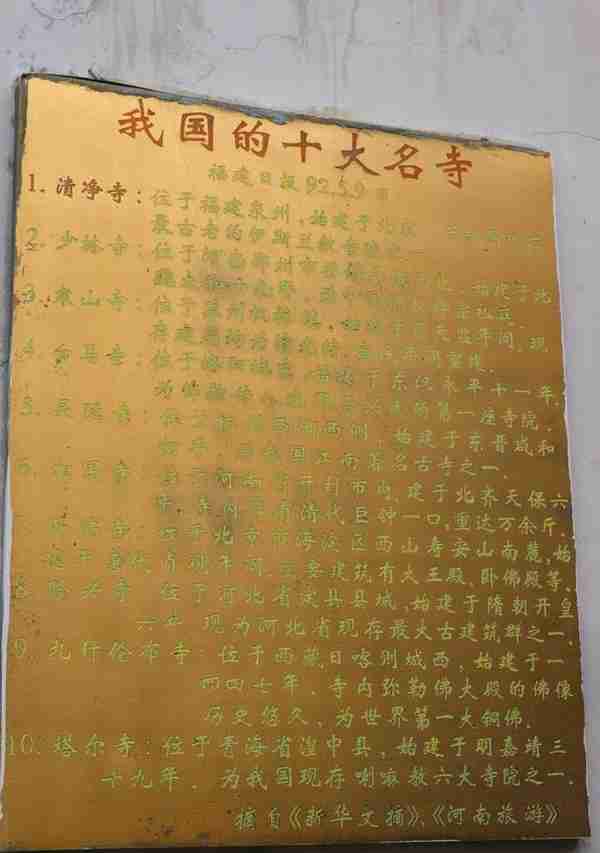 我国的十大名寺
福建日报92.5.9
1. 清净寺：位于福建泉州，始建于北宋
最古老的伊斯兰教寺院之一
2. 少林寺：位于河南郑州市 始建于北
3. 寒山寺：位于苏州枫桥镇，始建于 年间，现
存建筑
4. 白马寺：位于洛阳城东，始建于东汉永平十一年，
为佛教传入 第一座寺院.
5. 灵隐寺：位于杭州西湖西侧，始建于东晋咸和
我国江南著名古寺之一.
6. 相国寺：位于河南省开封市内，建于北齐天保六
年，寺内存有清代巨钟一口，重达万余斤.
7. 卧佛寺：位于北京市海淀区西山寿安山南麓，始
建于唐代贞观年间，主要建筑有天王殿、卧佛殿等.
8. 隆兴寺：位于河北省 县县城，始建于隋朝开皇
六年 现为河北省现存最大古建筑群之一.
9. 扎什伦布寺：位于西藏日喀则城西，始建于一
四四七年、寺内弥勒佛大殿的佛像
历史悠久、为世界第一大铜佛.
10. 塔尔寺：位于青海省湟中县，始建于明嘉靖三
十九年. 为我国现存喇嘛教六大寺院之一.
摘自《新华文摘》、《河南旅游》